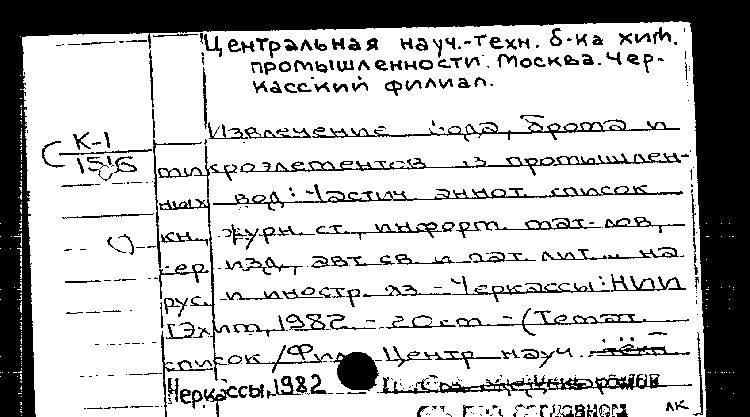 Центральная науч.-техн. б-ка хим.
промышленности. Москва. Чер-
касский филиал.
К-1
1516
Извлечение иода, брома и
микроэлементов из промышлен-
ных вод: Частич. аннот. список
кн., журн. ст., информ. мат-лов,
сер. изд., авт. св. и пат. лит... на
рус. и иностр. яз. - Черкассы: НИИ
ТЭхим, 1982. - 20 см. - (Темат.
список / Фил. Центр. науч. -техн.
Черкассы, 1982
ЛК